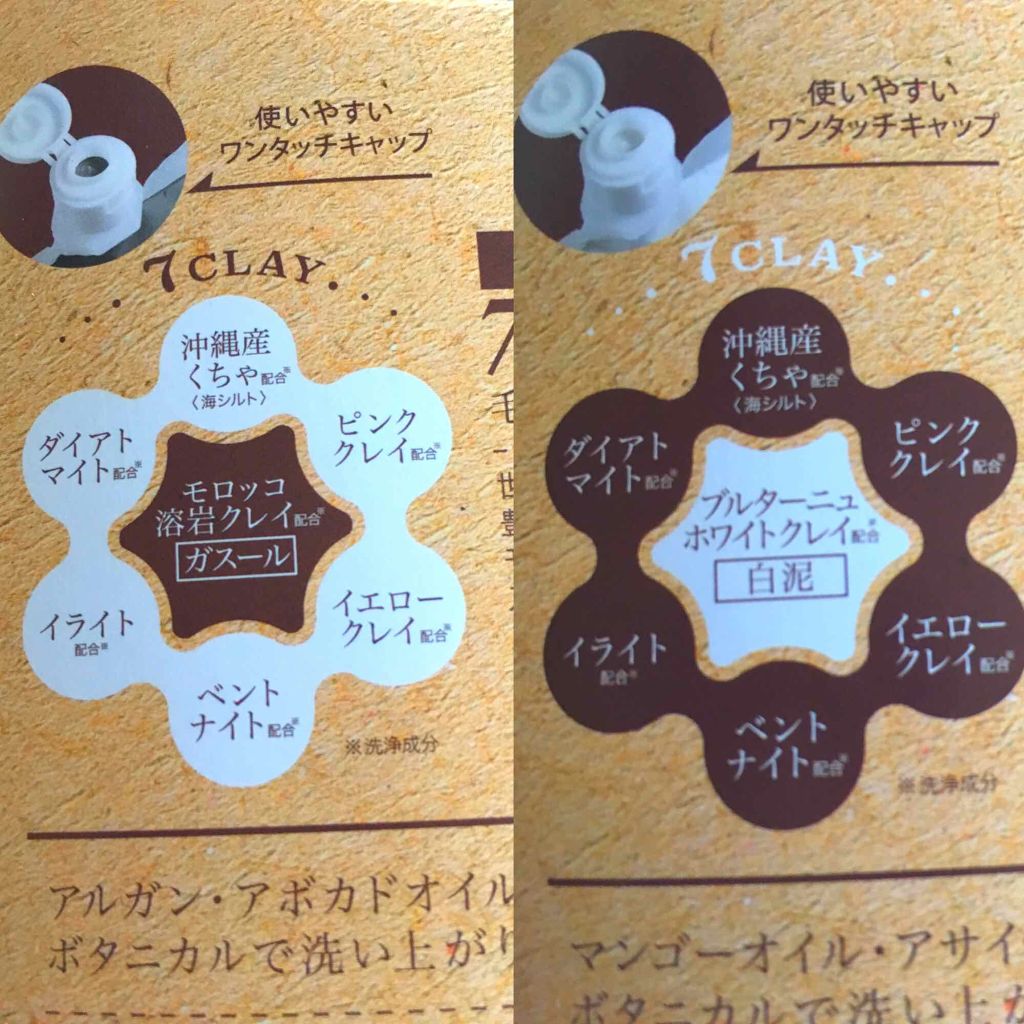 使いやすい
ワンタッチキャップ
7 CLAY
沖縄産
くちゃ配合※
〈海シルト〉
ダイアト
マイト配合※
ピンク
クレイ配合※
モロッコ
溶岩クレイ配合※
ガスール
イライト
配合※
イエロー
クレイ配合※
ベント
ナイト配合※
※洗浄成分
アルガン・アボカドオイル
ボタニカルで洗い上がり
使いやすい
ワンタッチキャップ
7 CLAY
沖縄産
くちゃ配合※
〈海シルト〉
ダイアト
マイト配合※
ピンク
クレイ配合※
ブルターニュ
ホワイトクレイ配合※
白泥
イライト
配合※
イエロー
クレイ配合※
ベント
ナイト配合※
※洗浄成分
マンゴーオイル・アサイ
ボタニカルで洗い上が